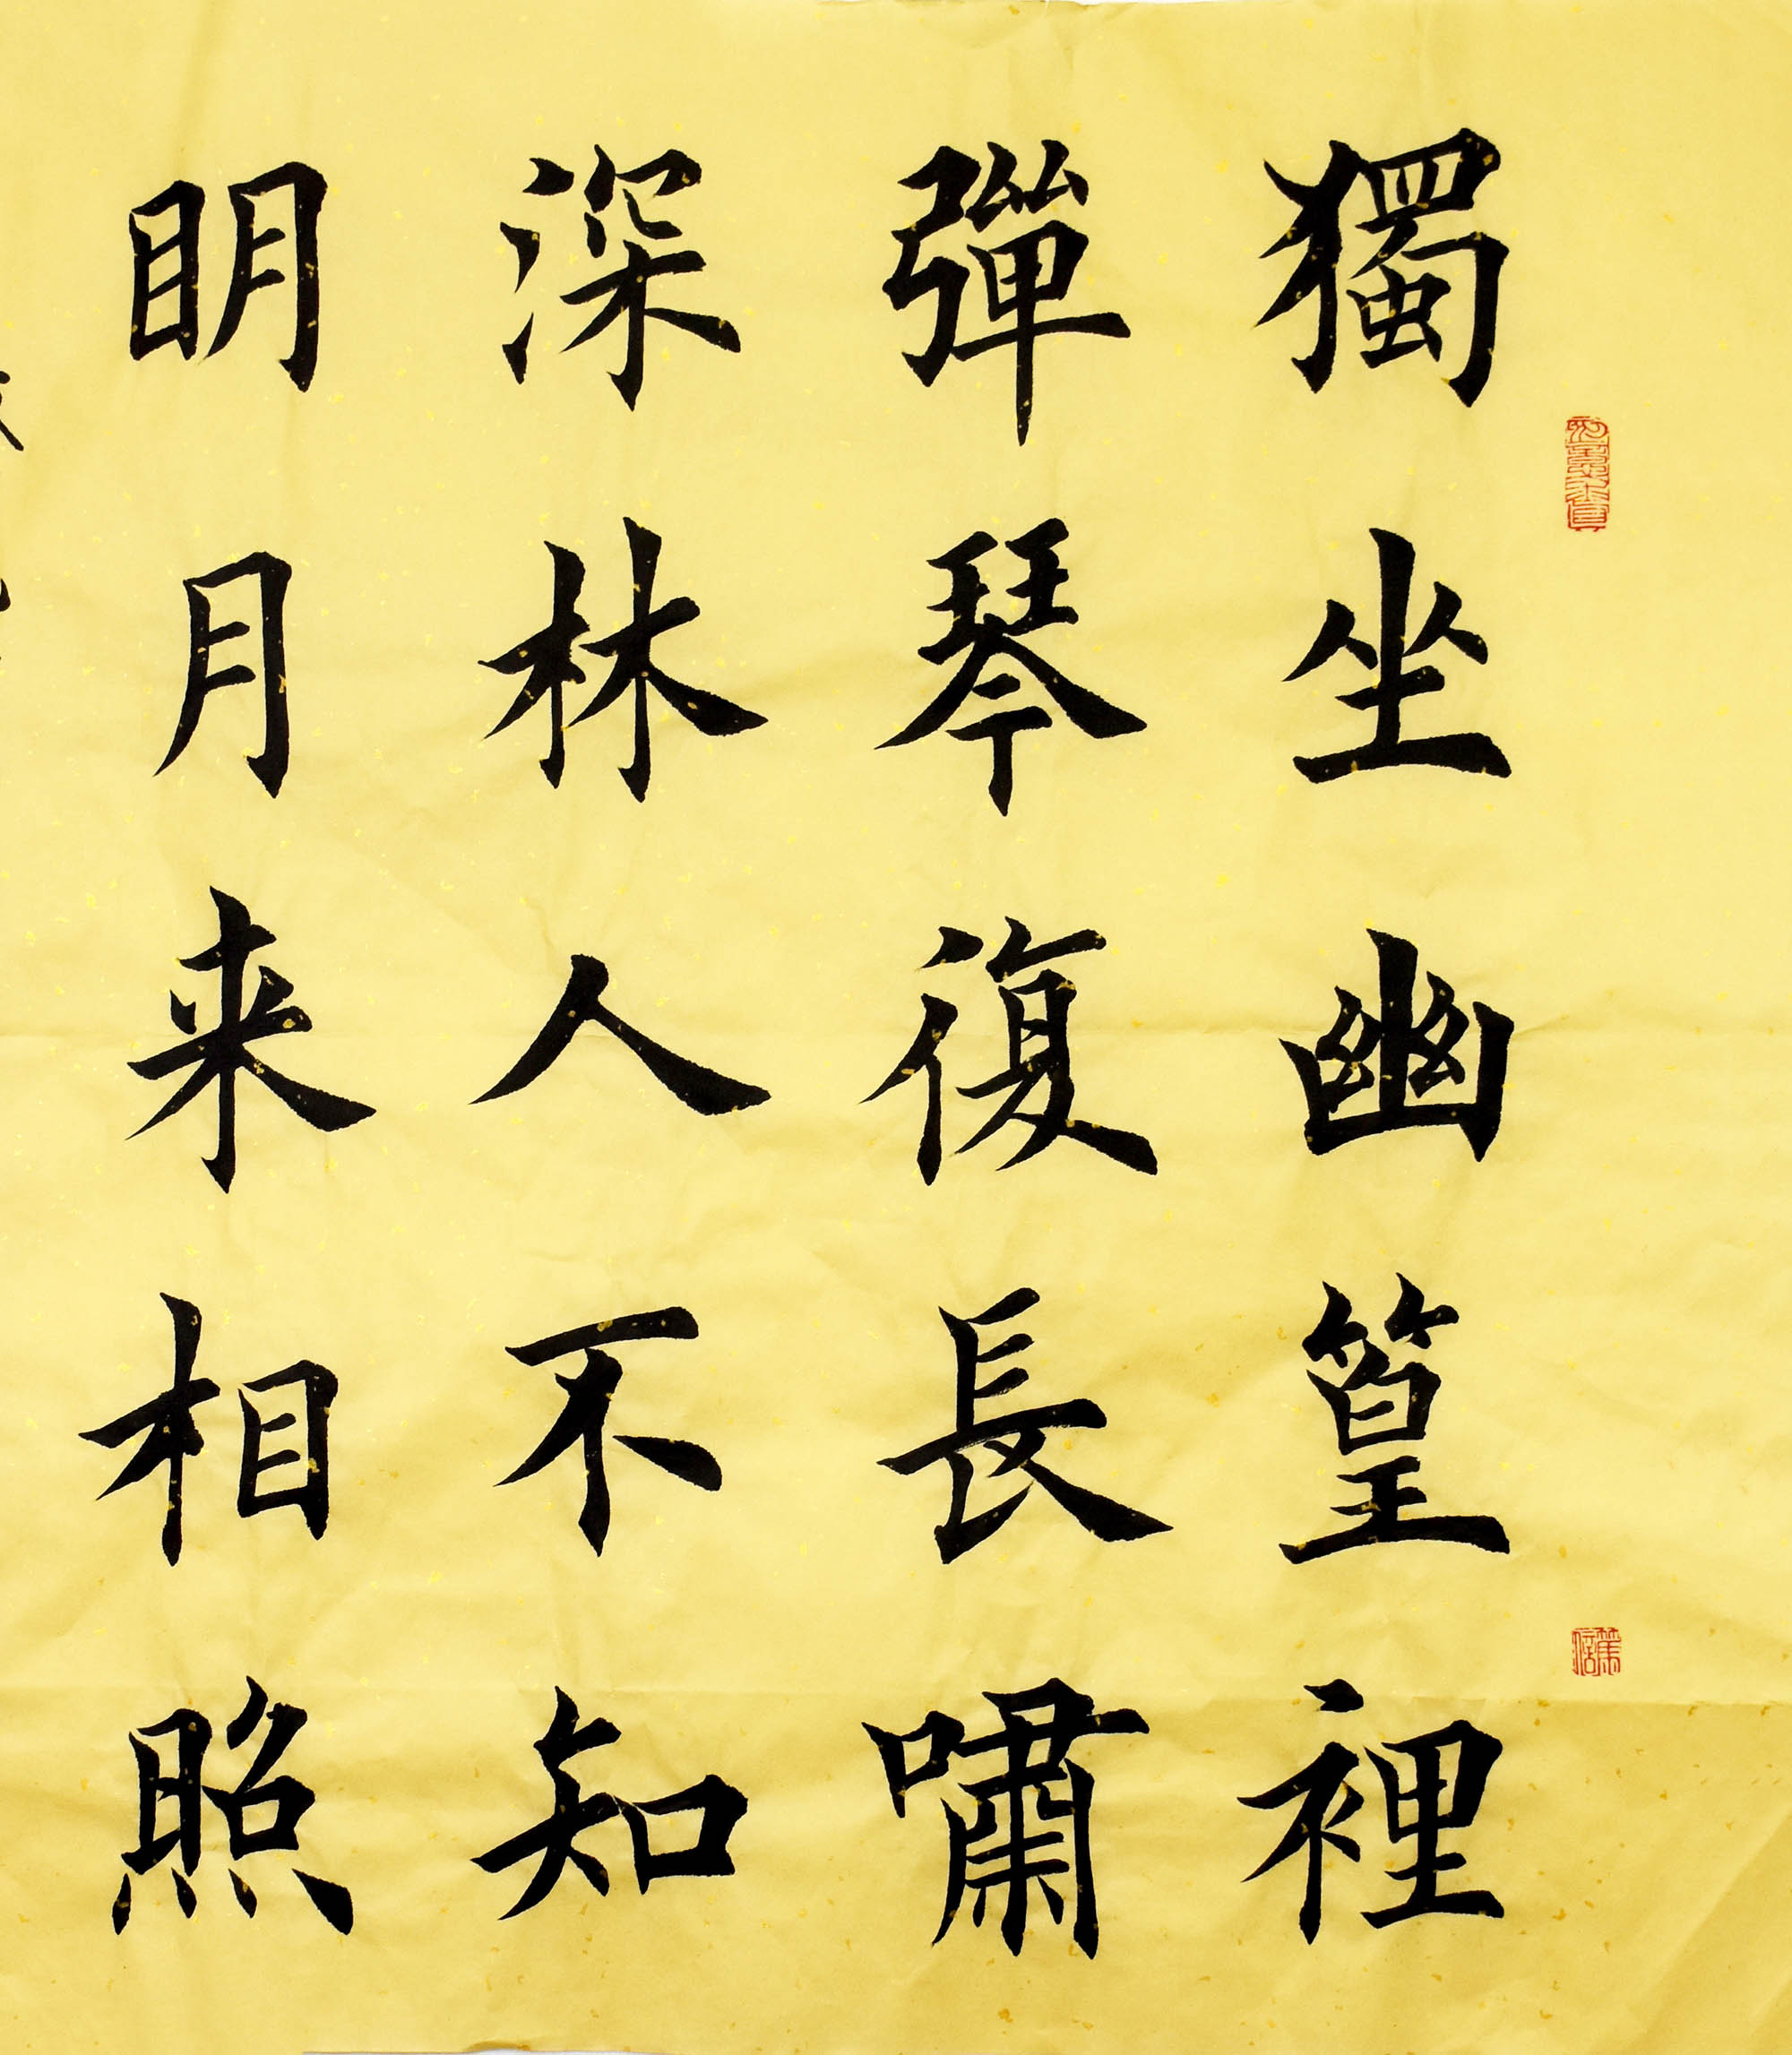 獨坐幽篁裡
彈琴復長嘯
深林人不知
明月来相照